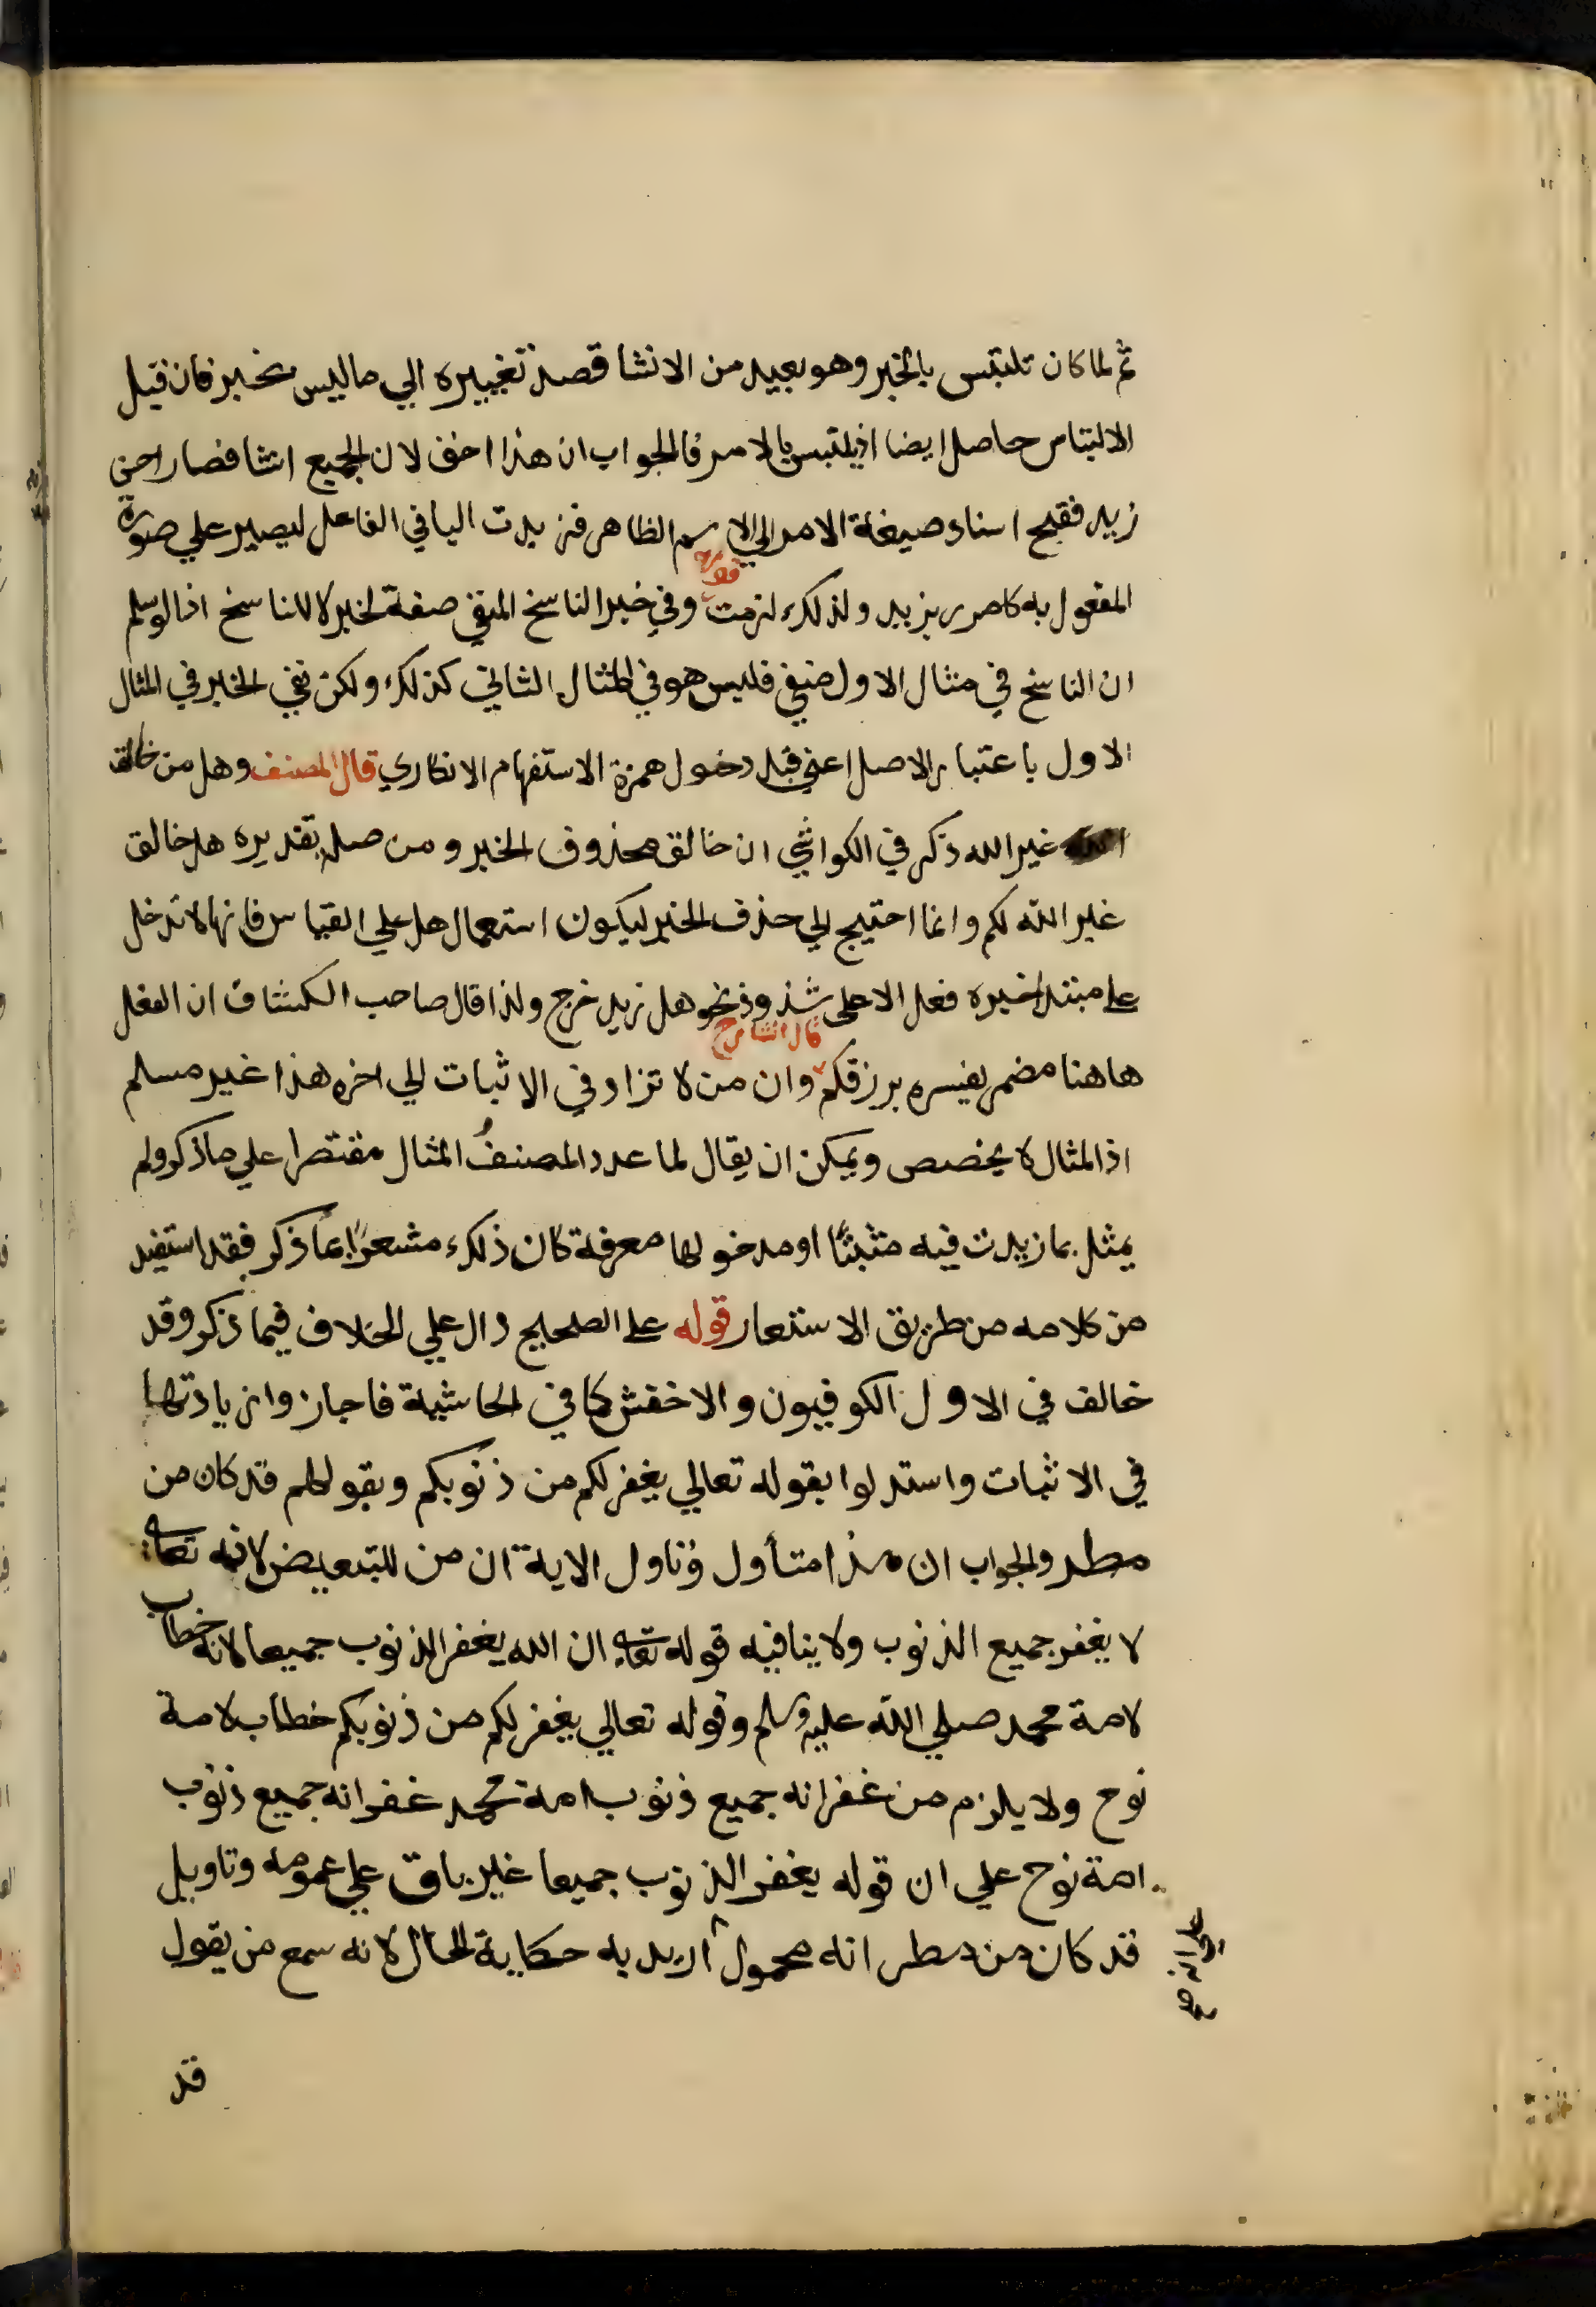 ثم لما كان تلتبس بالخبر وهو بعيد من الانشا قصد تغييره الي ما ليس بخبر فان قيل
الالتباس حاصل ايضا اذ يلتبس بالامر فالجواب ان هذا اخف لان الجميع انشا فصار احسن
زيد فقبح اسناد صيغة الامر الي الاسم الظاهر فزيدت البا في الفاعل ليصير علي صورة
قوله
المفعول به كامرر بزيد ولذلك لزمت وفي خبر الناسخ المنفي صفة لخبر لا للناسخ اذ لو سلم
ان الناسخ في مثال الاول منفي فليس هو في المثال الثاني كذلك ولكن نفي الخبر في المثال
الاول باعتبار الاصل اعني قبل دخول همزة الاستفهام الانكاري قال المصنف وهل من خالق
غير الله ذكر في الكواشي ان خالق محذوف الخبر ومن صلة تقديره هل خالق
غير الله لكم وانما احتيج الي حذف الخبر ليكون استعمال هل علي القياس فانها لا تدخل
علي مبتدا خبره فعل الا علي شذوذ نحو هل زيد خرج ولذا قال صاحب الكشاف ان الفعل
قال الشارح
هاهنا مضمر يفسره يرزقكم وان من لا تزاد في الاثبات الي اخره هذا غير مسلم
اذ المثال لا يخصص ويمكن ان يقال لما عدد المصنفُ المثال مقتصرا علي ما ذكر ولم
يمثل بما زيدت فيه مثبتًا او مدخولها معرفة كان ذلك مشعرًا بما ذكر فقد استفيد
من كلامه من طريق الاستعار قوله علي الصحيح دال علي الخلاف فيما ذكر وقد
خالف في الاول الكوفيون والاخفش كما في الحاشية فاجازوا زيادتها
في الاثبات واستدلوا بقوله تعالي يغفر لكم من ذنوبكم وبقولهم قد كان من
مطر والجواب ان هذا متأول وتاول الاية ان من للتبعيض لانه تعالى
لا يغفر جميع الذنوب ولا ينافيه قوله تعالى ان الله يغفر الذنوب جميعا لانه خطاب
لامة محمد صلي الله عليه وسلم وقوله تعالي يغفر لكم من ذنوبكم خطاب لامة
نوح ولا يلزم من غفرانه جميع ذنوب امة محمد غفرانه جميع ذنوب
امة نوح علي ان قوله يغفر الذنوب جميعا غير باق علي عمومه وتاويل
قد كان من مطر انه محمول اريد به حكاية الحال لانه سمع من يقول
قد